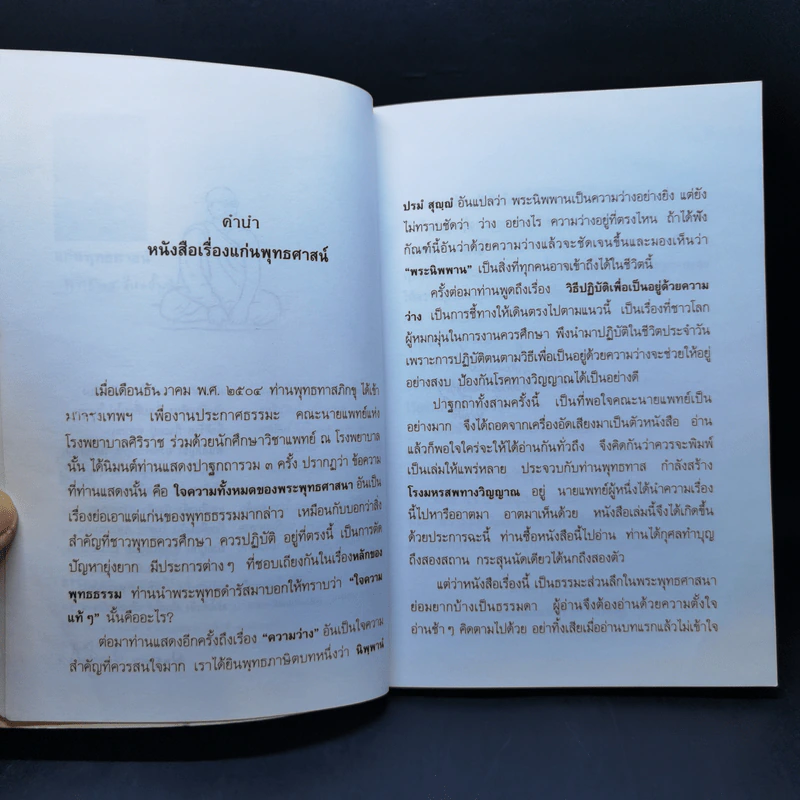 คำนำ
หนังสือเรื่องแก่นพุทธศาสน์
เมื่อเดือนธันวาคม พ.ศ. ๒๕๐๔ ท่านพุทธทาสภิกขุ ได้เข้า
มากรุงเทพฯ เพื่องานประกาศธรรมะ คณะนายแพทย์แห่ง
โรงพยาบาลศิริราช ร่วมด้วยนักศึกษาวิชาแพทย์ ณ โรงพยาบาล
นั้น ได้นิมนต์ท่านแสดงปาฐกถารวม ๓ ครั้ง ปรากฏว่า ข้อความ
ที่ท่านแสดงนั้น คือ ใจความทั้งหมดของพระพุทธศาสนา อันเป็น
เรื่องย่อเอาแต่แก่นของพุทธธรรมมากล่าว เหมือนกับบอกว่าสิ่ง
สำคัญที่ชาวพุทธควรศึกษา ควรปฏิบัติ อยู่ที่ตรงนี้ เป็นการตัด
ปัญหายุ่งยาก มีประการต่าง ๆ ที่ชอบเถียงกันในเรื่องหลักของ
พุทธธรรม ท่านนำพระพุทธดำรัสมาบอกให้ทราบว่า “ใจความ
แท้ ๆ” นั้นคืออะไร?
ต่อมาท่านแสดงอีกครั้งถึงเรื่อง “ความว่าง” อันเป็นใจความ
สำคัญที่ควรสนใจมาก เราได้ยินพุทธภาษิตบทหนึ่งว่า นิพฺพานํ
ปรมํ สุญฺญํ อันแปลว่า พระนิพพานเป็นความว่างอย่างยิ่ง แต่ยัง
ไม่ทราบชัดว่า ว่าง อย่างไร ความว่างอยู่ที่ตรงไหน ถ้าได้ฟัง
กัณฑ์นี้อันว่าด้วยความว่างแล้วจะชัดเจนขึ้นและมองเห็นว่า
“พระนิพพาน” เป็นสิ่งที่ทุกคนอาจเข้าถึงได้ในชีวิตนี้
ครั้งต่อมาท่านพูดถึงเรื่อง วิธีปฏิบัติเพื่อเป็นอยู่ด้วยความ
ว่าง เป็นการชี้ทางให้เดินตรงไปตามแนวนี้ เป็นเรื่องที่ชาวโลก
ผู้หมกมุ่นในการงานควรศึกษา พึงนำมาปฏิบัติในชีวิตประจำวัน
เพราะการปฏิบัติตนตามวิธีเพื่อเป็นอยู่ด้วยความว่างจะช่วยให้อยู่
อย่างสงบ ป้องกันโรคทางวิญญาณได้เป็นอย่างดี
ปาฐกถาทั้งสามครั้งนี้ เป็นที่พอใจคณะนายแพทย์เป็น
อย่างมาก จึงได้ถอดจากเครื่องอัดเสียงมาเป็นตัวหนังสือ อ่าน
แล้วก็พอใจใคร่จะให้ได้อ่านกันทั่วถึง จึงคิดกันว่าควรจะพิมพ์
เป็นเล่มให้แพร่หลาย ประจวบกับท่านพุทธทาส กำลังสร้าง
โรงมหรสพทางวิญญาณ อยู่ นายแพทย์ผู้หนึ่งได้นำความเรื่อง
นี้ไปหารืออาตมา อาตมาเห็นด้วย หนังสือเล่มนี้จึงได้เกิดขึ้น
ด้วยประการฉะนี้ ท่านซื้อหนังสือนี้ไปอ่าน ท่านได้กุศลทำบุญ
ถึงสองสถาน กระสุนนัดเดียวได้นกถึงสองตัว
แต่ว่าหนังสือเรื่องนี้ เป็นธรรมะส่วนลึกในพระพุทธศาสนา
ย่อมยากบ้างเป็นธรรมดา ผู้อ่านจึงต้องอ่านด้วยความตั้งใจ
อ่านช้า ๆ คิดตามไปด้วย อย่าทิ้งเสียเมื่ออ่านบทแรกแล้วไม่เข้าใจ